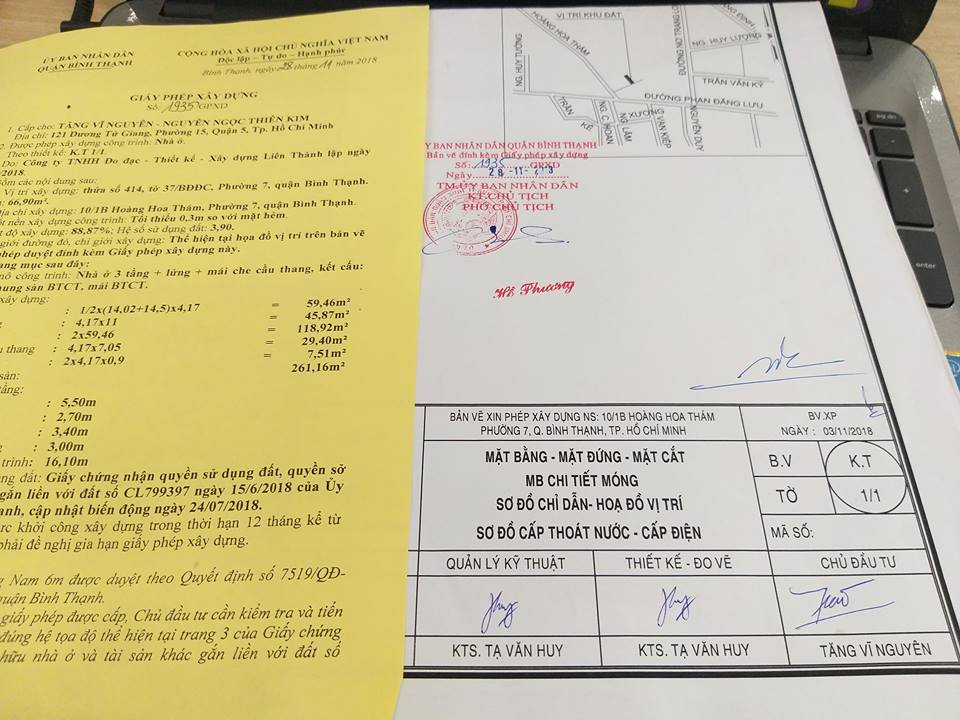 ỦY BAN NHÂN DÂN
QUẬN BÌNH THẠNH
CỘNG HÒA XÃ HỘI CHỦ NGHĨA VIỆT NAM
Độc lập – Tự do – Hạnh phúc
Bình Thạnh, ngày 28 tháng 11 năm 2018
GIẤY PHÉP XÂY DỰNG
Số: 1935/GPXD
1. Cấp cho: TĂNG VĨ NGUYÊN - NGUYỄN NGỌC THIÊN KIM
Địa chỉ: 121 Dương Tử Giang, Phường 15, Quận 5, Tp. Hồ Chí Minh
2. Được phép xây dựng công trình: Nhà ở.
Theo thiết kế: K.T 1/1.
Do: Công ty TNHH Đo đạc - Thiết kế - Xây dựng Liên Thành lập ngày
/2018.
Gồm các nội dung sau:
Vị trí xây dựng: thửa số 414, tờ 37/BĐĐC, Phường 7, quận Bình Thạnh.
: 66,90m².
Địa chỉ xây dựng: 10/1B Hoàng Hoa Thám, Phường 7, quận Bình Thạnh.
ốt nền xây dựng công trình: Tối thiểu 0,3m so với mặt hẻm.
ật độ xây dựng: 88,87%; Hệ số sử dụng đất: 3,90.
giới đường đỏ, chỉ giới xây dựng: Thể hiện tại họa đồ vị trí trên bản vẽ
phép duyệt đính kèm Giấy phép xây dựng này.
ạng mục sau đây:
mô công trình: Nhà ở 3 tầng + lửng + mái che cầu thang, kết cấu:
hung sàn BTCT, mái BTCT.
xây dựng:
: 1/2x(14,02+14,5)x4,17 = 59,46m²
g : 4,17x11 = 45,87m²
: 2x59,46 = 118,92m²
u thang : 4,17x7,05 = 29,40m²
: 2x4,17x0,9 = 7,51m²
sàn: 261,16m²
tầng:
: 5,50m
: 2,70m
: 3,40m
g : 3,00m
trình: 16,10m
ng đất: Giấy chứng nhận quyền sử dụng đất, quyền sở
gắn liền với đất số CL799397 ngày 15/6/2018 của Ủy
anh, cập nhật biến động ngày 24/07/2018.
ực khởi công xây dựng trong thời hạn 12 tháng kể từ
phải đề nghị gia hạn giấy phép xây dựng.
g Nam 6m được duyệt theo Quyết định số 7519/QĐ-
quận Bình Thạnh.
giấy phép được cấp, Chủ đầu tư cần kiểm tra và tiến
đúng hệ tọa độ thể hiện tại trang 3 của Giấy chứng
hữu nhà ở và tài sản khác gắn liền với đất số
VỊ TRÍ KHU ĐẤT
HOÀNG HOA THÁM
NG. HUY TƯỞNG
ĐƯỜNG NƠ TRANG LO
NG. HUY LƯỢNG
TRẦN VĂN KỶ
ĐƯỜNG PHAN ĐĂNG LƯU
TRẦN KẾ XƯƠNG
NG. C. HOAN
NG. LÂM
VẠN KIẾP
NGUYÊN DUY
ỦY BAN NHÂN DÂN QUẬN BÌNH THẠNH
Bản vẽ đính kèm Giấy phép xây dựng
Số: 1935 GPXD
Ngày 28 -11- 2018
TM. ỦY BAN NHÂN DÂN
KT. CHỦ TỊCH
PHÓ CHỦ TỊCH
Hồ Phương
BẢN VẼ XIN PHÉP XÂY DỰNG NS: 10/1B HOÀNG HOA THÁM
PHƯỜNG 7, Q. BÌNH THẠNH, TP. HỒ CHÍ MINH
BV.XP
NGÀY : 03/11/2018
MẶT BẰNG - MẶT ĐỨNG - MẶT CẮT
MB CHI TIẾT MÓNG
SƠ ĐỒ CHỈ DẪN- HOẠ ĐỒ VỊ TRÍ
SƠ ĐỒ CẤP THOÁT NƯỚC - CẤP ĐIỆN
B.V K.T
TỜ 1/1
MÃ SỐ:
QUẢN LÝ KỸ THUẬT
THIẾT KẾ - ĐO VẼ
CHỦ ĐẦU TƯ
KTS. TẠ VĂN HUY
KTS. TẠ VĂN HUY
TĂNG VĨ NGUYÊN
enter